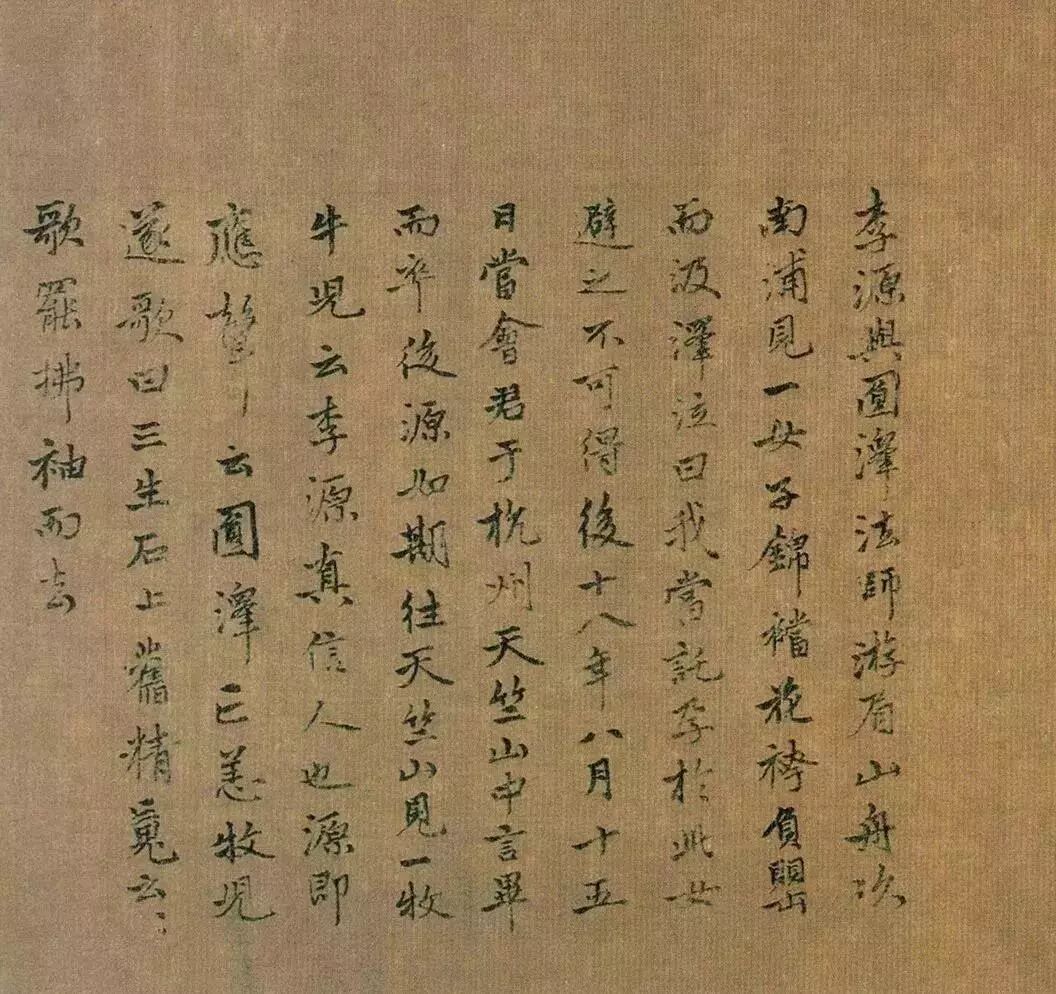 李源與圓澤法師游眉山舟次
南浦見一女子錦襠花袴負罌
而汲澤泣曰我當託孕於此女
避之不可得後十八年八月十五
日當會君于杭州天竺山中言畢
而卒後源如期往天竺山見一牧
牛児云李源真信人也源即
應云圓澤亡恙牧児
遂歌曰三生石上舊精䰟云〻
歌罷拂袖而去